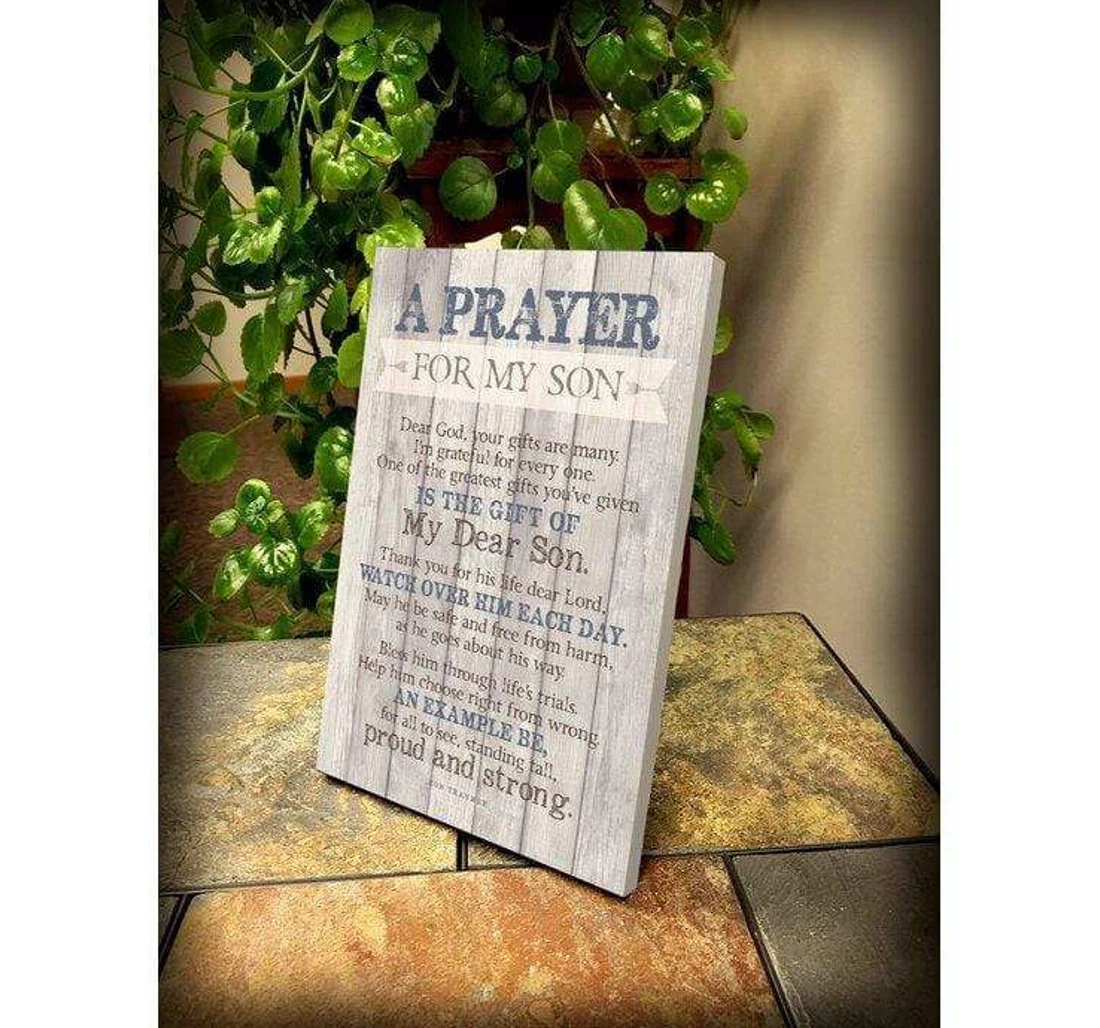 A PRAYER
FOR MY SON
Dear God, your gifts are many.
I'm grateful for every one.
One of the greatest gifts you've given
IS THE GIFT OF
My Dear Son.
Thank you for his life dear Lord,
WATCH OVER HIM EACH DAY.
May he be safe and free from harm,
as he goes about his way.
Bless him through life's trials.
Help him choose right from wrong
AN EXAMPLE BE,
for all to see, standing tall,
proud and strong.